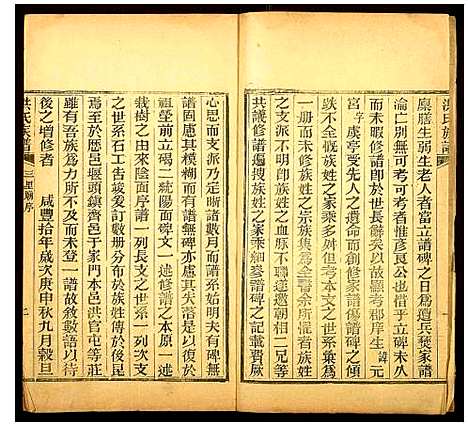 洪氏族譜
廩膳生弱生老人者當立譜碑之日爲遭兵燹家譜
淪亡別無可考有可考者惟彥良公與曾立碑未八
而未暇修譜即於世長辭矣以故顯考郡庠生諱元
宮字虞亭受先人之遺命而創修家譜傷譜碑之
跌不全歎族姓之家乘細但考本支之世系彙爲
一册而未修族姓之宗族集爲全書余所混者族姓
之支派不紊族姓之血脉不亂遂邀朝相二兄等
共議修譜遍搜族姓之家乘細參譜碑之記載費厥
心思而支派乃定晰諸數月而譜系始明夫有碑無
譜固慮其模糊而有譜無碑亦慮其失落是以於
祖塋前立碣二統陽面碑文一述修譜之本一述
樹碑之由來陰面序譜一列長支之世系一列次支
之世系石工告竣爰訂數册分布於族姓傳於後昆
焉至於歷邑堰頭鎮齊邑于家門本邑洪官屯等莊
雖有吾族爲力所不及而未登一譜故敘數語以待
後之增修者
咸豐拾年歲次庚申秋九月穀旦
洪氏族譜 三里廟序 二